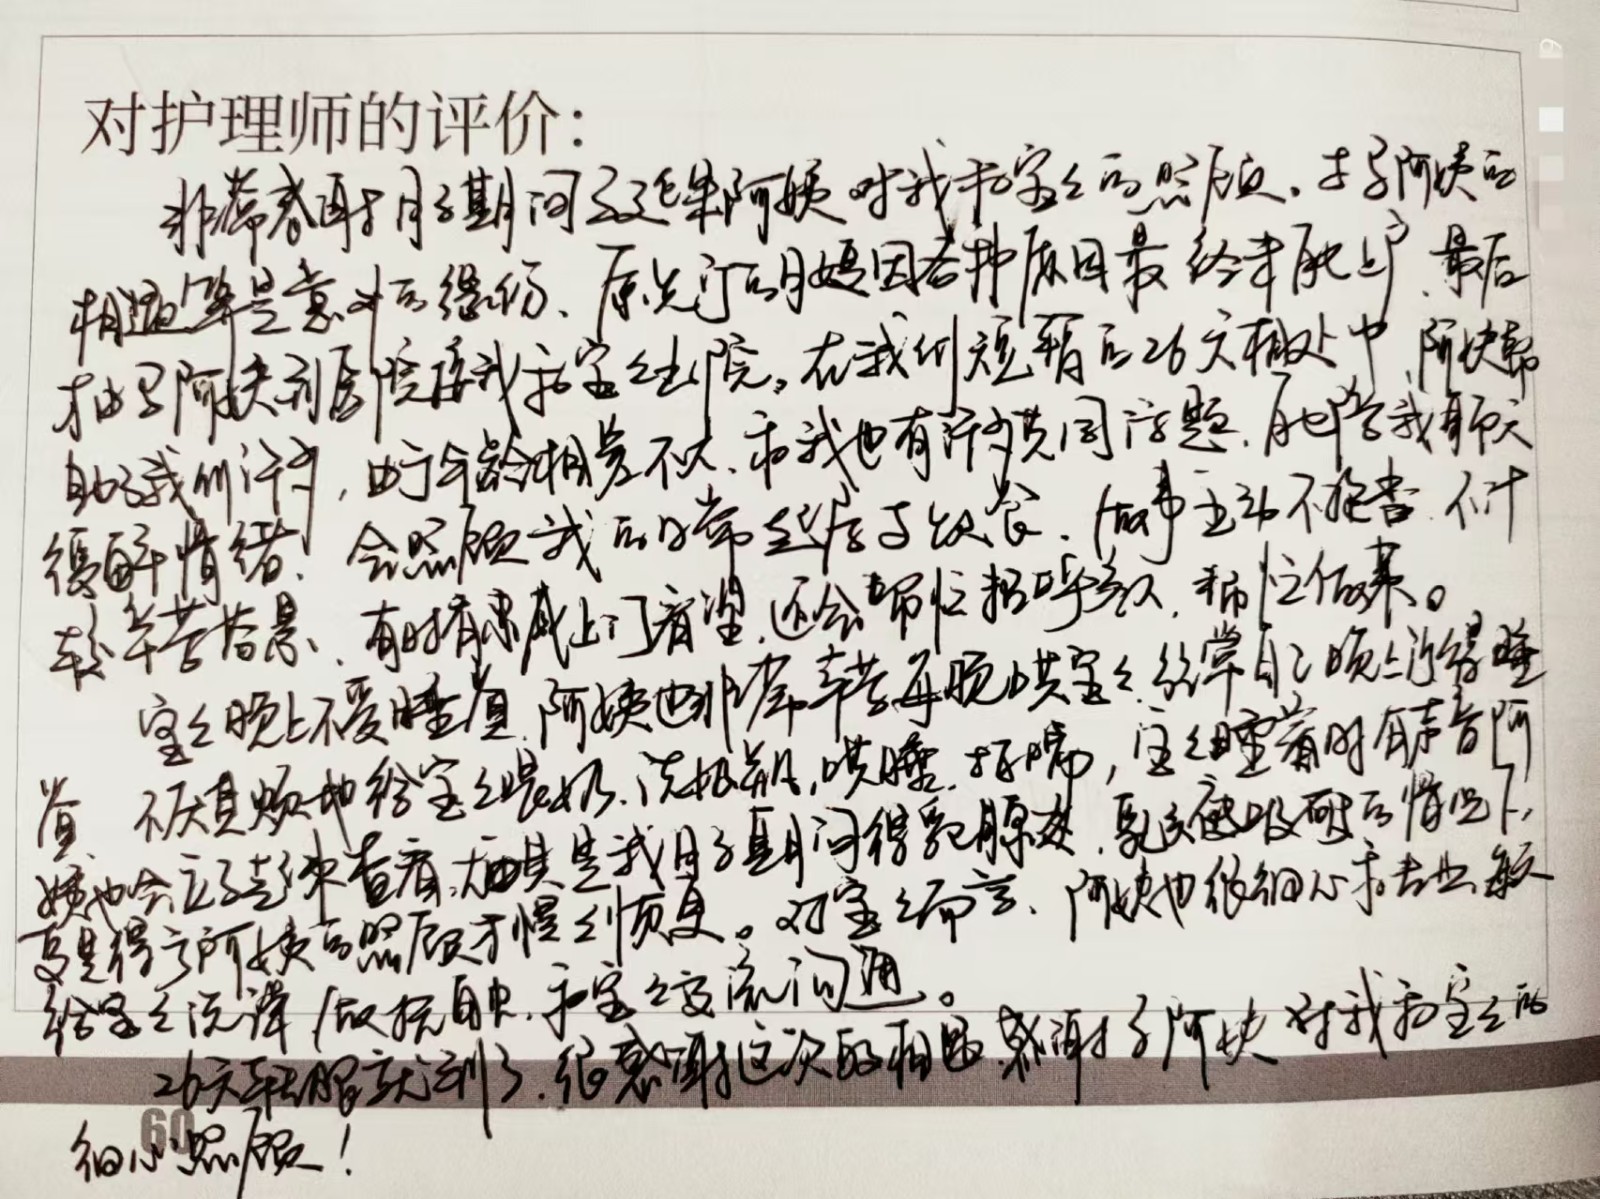 对护理师的评价：
非常感谢月子期间 阿姨对我和宝宝的照顾。与 阿姨的
相遇算是意外的缘份、原先订的月嫂因各种原因最终未能上户、最后
才由 阿姨到医院接我和宝宝出院。在我们短暂的26天相处中，阿姨帮
助了我们许多，由于年龄相差不大、和我也有许多共同话题、能陪我聊天
缓解情绪、会照顾我的日常起居与饮食、做事主动不抱怨、不计
较辛苦与累、有时有亲戚上门看望、还会帮忙招呼客人，帮忙做菜。
宝宝晚上不爱睡觉、阿姨也非常辛苦每晚哄宝宝、经常自己顾不上睡
觉、不厌其烦地给宝宝喂奶、洗奶瓶、哄睡、拍嗝，宝宝睡着时有声音阿
姨也会立马起来查看、尤其是我月子期间得乳腺炎、乳头被吸破的情况下，
更是得亏阿姨的照顾才慢慢恢复。对宝宝而言、阿姨也很细心和专业、每天
给宝宝洗澡、做抚触、和宝宝交流沟通。
26天转眼就到了、很感谢这次的相遇、感谢 阿姨对我和宝宝的
细心照顾！
60